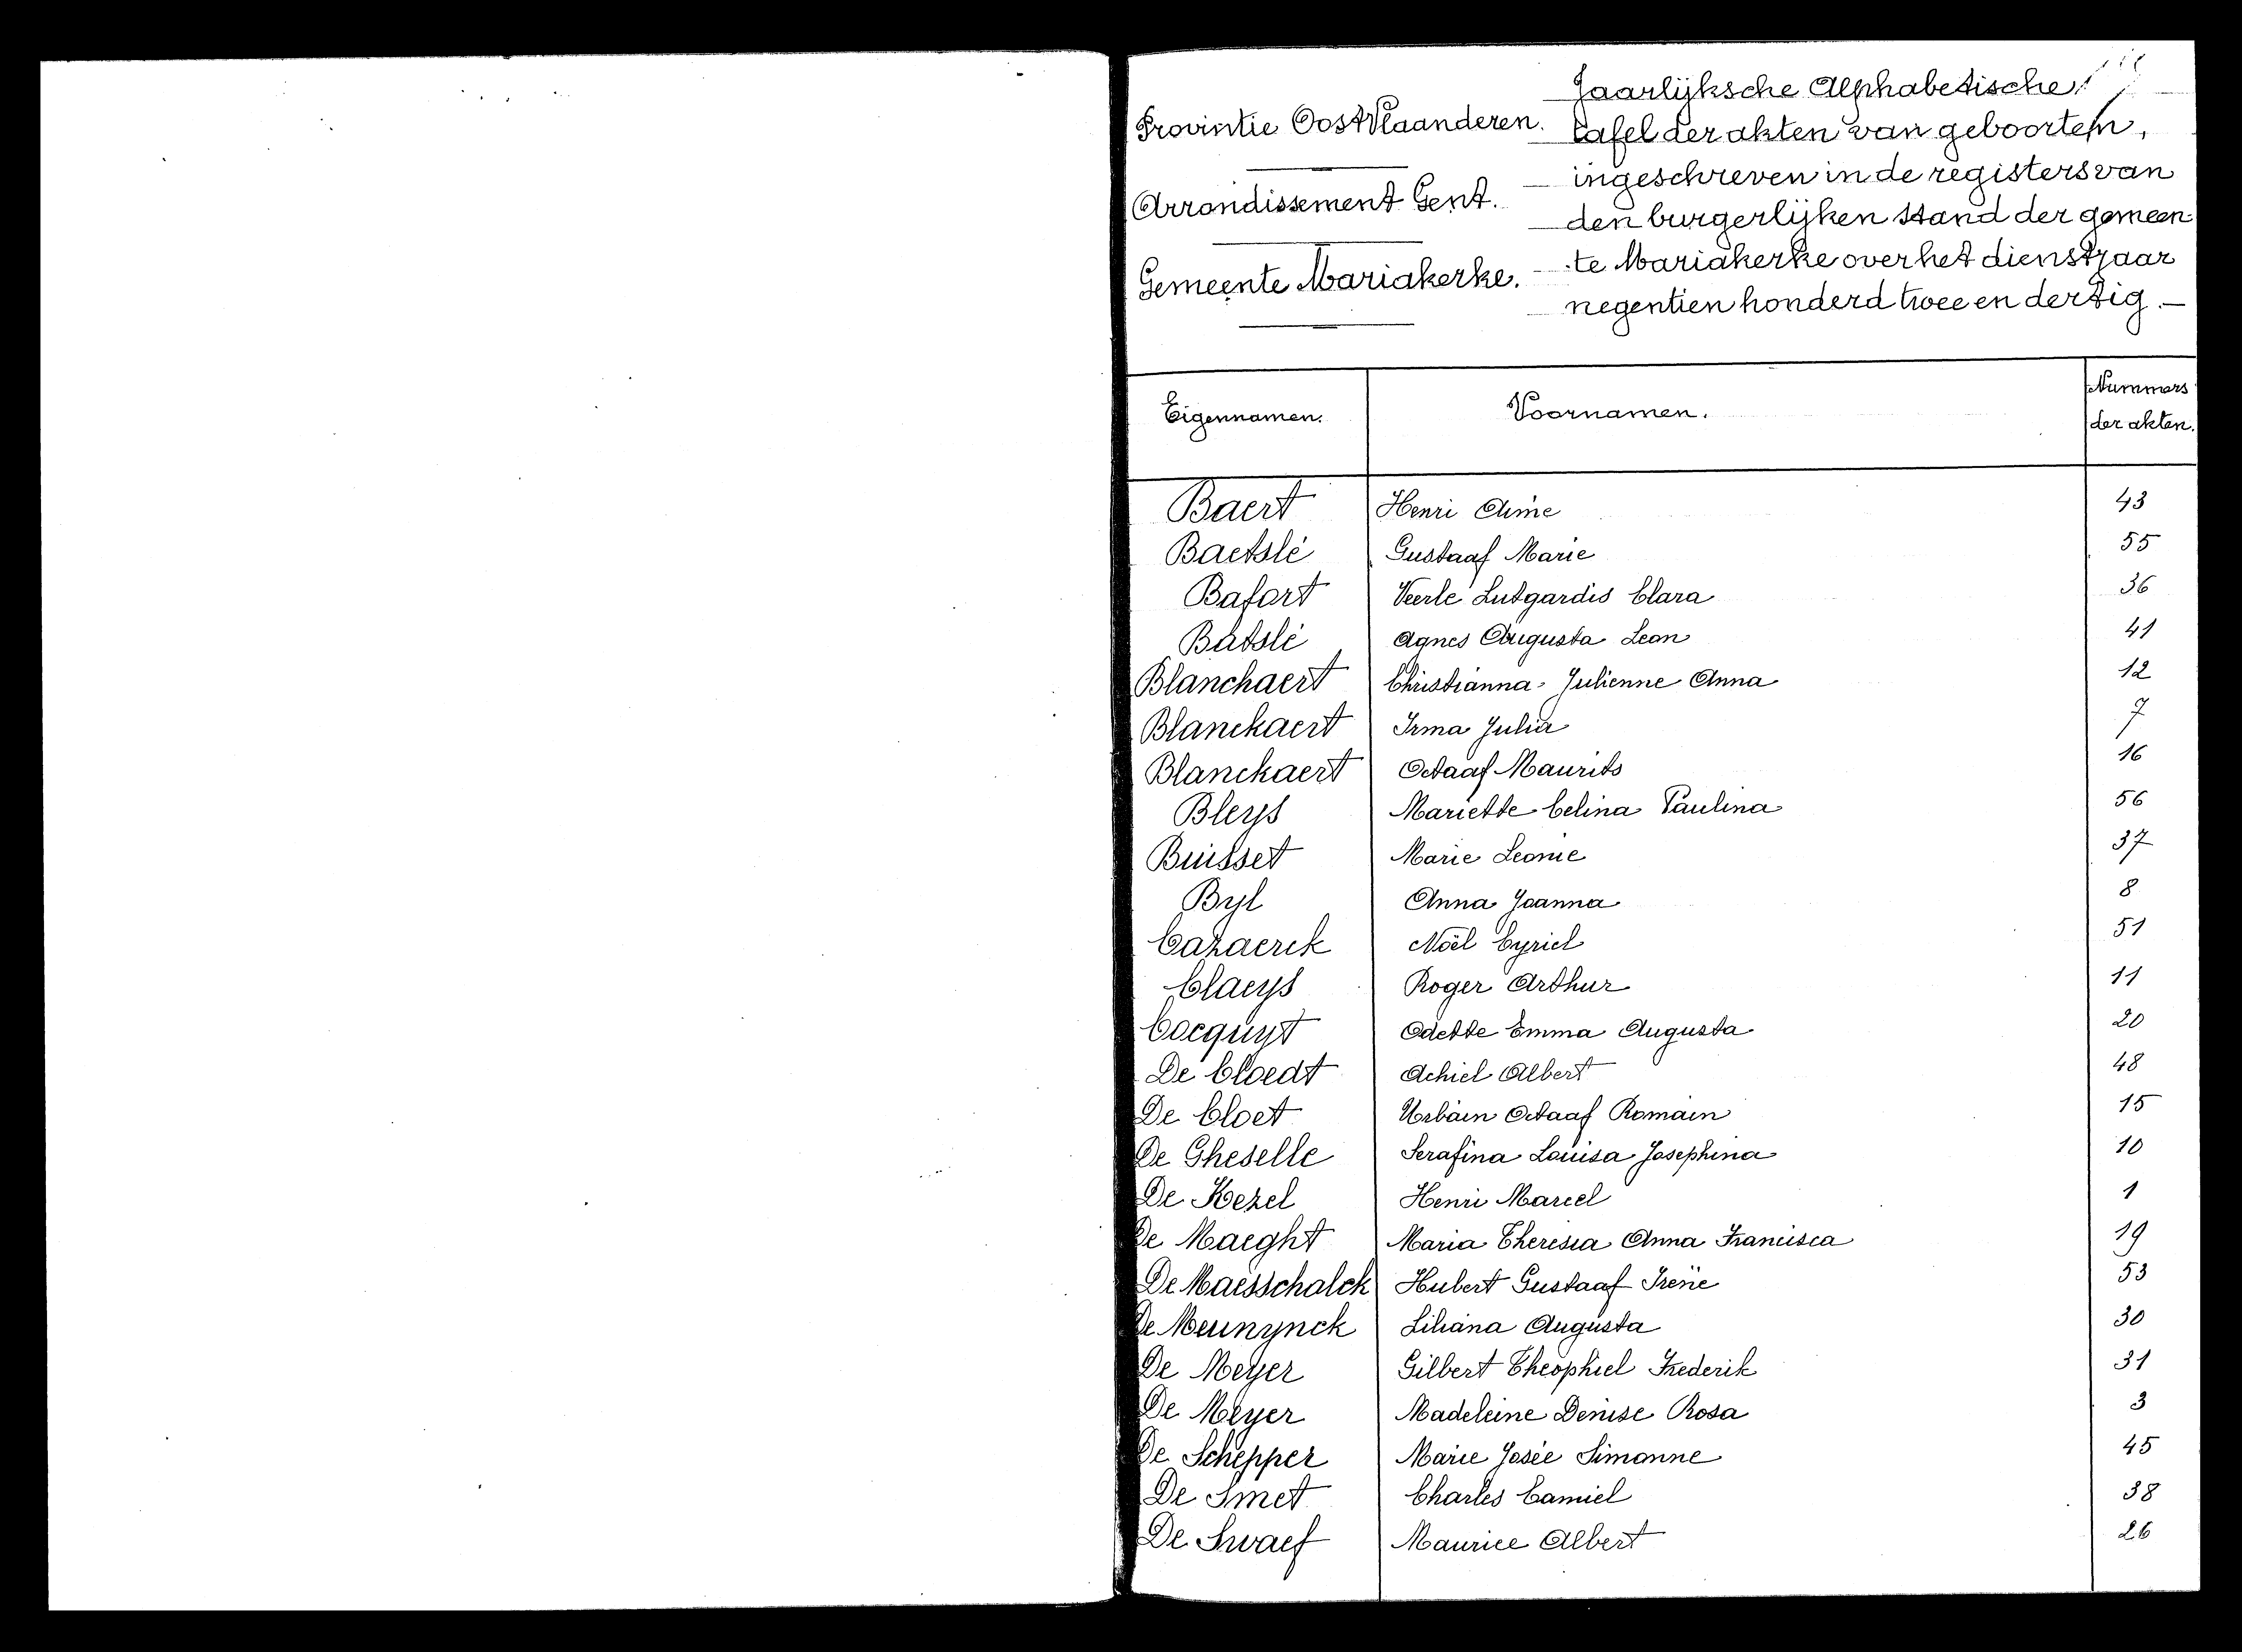 Provintie Oost Vlaanderen.
Arrondissement Gent.
Gemeente Mariakerke.
Jaarlijksche Alphabetische
tafel der akten van geboorten,
ingeschreven in de registers van
den burgerlijken stand der gemeen-
te Mariakerke over het dienstjaar
negentien honderd twee en dertig.
Eigennamen. Voornamen. Nummers der akten.
Baert Henri Aimé 43
Baetslé Gustaaf Marie 55
Bafort Veerle Lutgardis Clara 36
Batslé Agnes Augusta Leon 41
Blanchaert Christianna Julienne Anna 12
Blanckaert Irma Julia 7
Blanckaert Octaaf Maurits 16
Bleys Mariette Celina Paulina 56
Buisset Marie Leonie 37
Byl Anna Joanna 8
Cazaerck Noël Cyriel 51
Claeys Roger Arthur 11
Cocquyt Odette Emma Augusta 20
De Cloedt Achiel Albert 48
De Cloet Urbain Octaaf Romain 15
De Gheselle Serafina Louisa Josephina 10
De Kezel Henri Marcel 1
De Maeght Maria Theresia Anna Francisca 19
De Maesschalck Hubert Gustaaf Irène 53
De Meunynck Liliana Augusta 30
De Meyer Gilbert Theophiel Frederik 31
De Meyer Madeleine Denise Rosa 3
De Schepper Marie Josée Simonne 45
De Smet Charles Camiel 38
De Swaef Maurice Albert 26